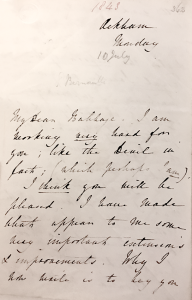 1843
363
Ockham
Monday
10 July
My Dear Babbage. I am
working very hard for
you; like the Devil in
fact; (which perhaps I am).
I think you will be
pleased. I have made
what appear to me some
very important extensions
& improvements. Why I
now write is to beg you